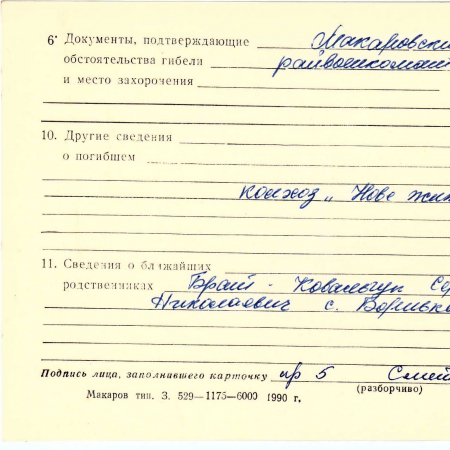 6. Документы, подтверждающие Макаровски
обстоятельства гибели райвоенкомат
и место захоронения
10. Другие сведения
о погибшем
колхоз „Нове жит
11. Сведения о ближайших
родственниках Брат - Ковальчук Сер
Николаевич с.
Подпись лица, заполнившего карточку пр 5 Семей
(разборчиво)
Макаров тип. З. 529—1175—6000 1990 г.